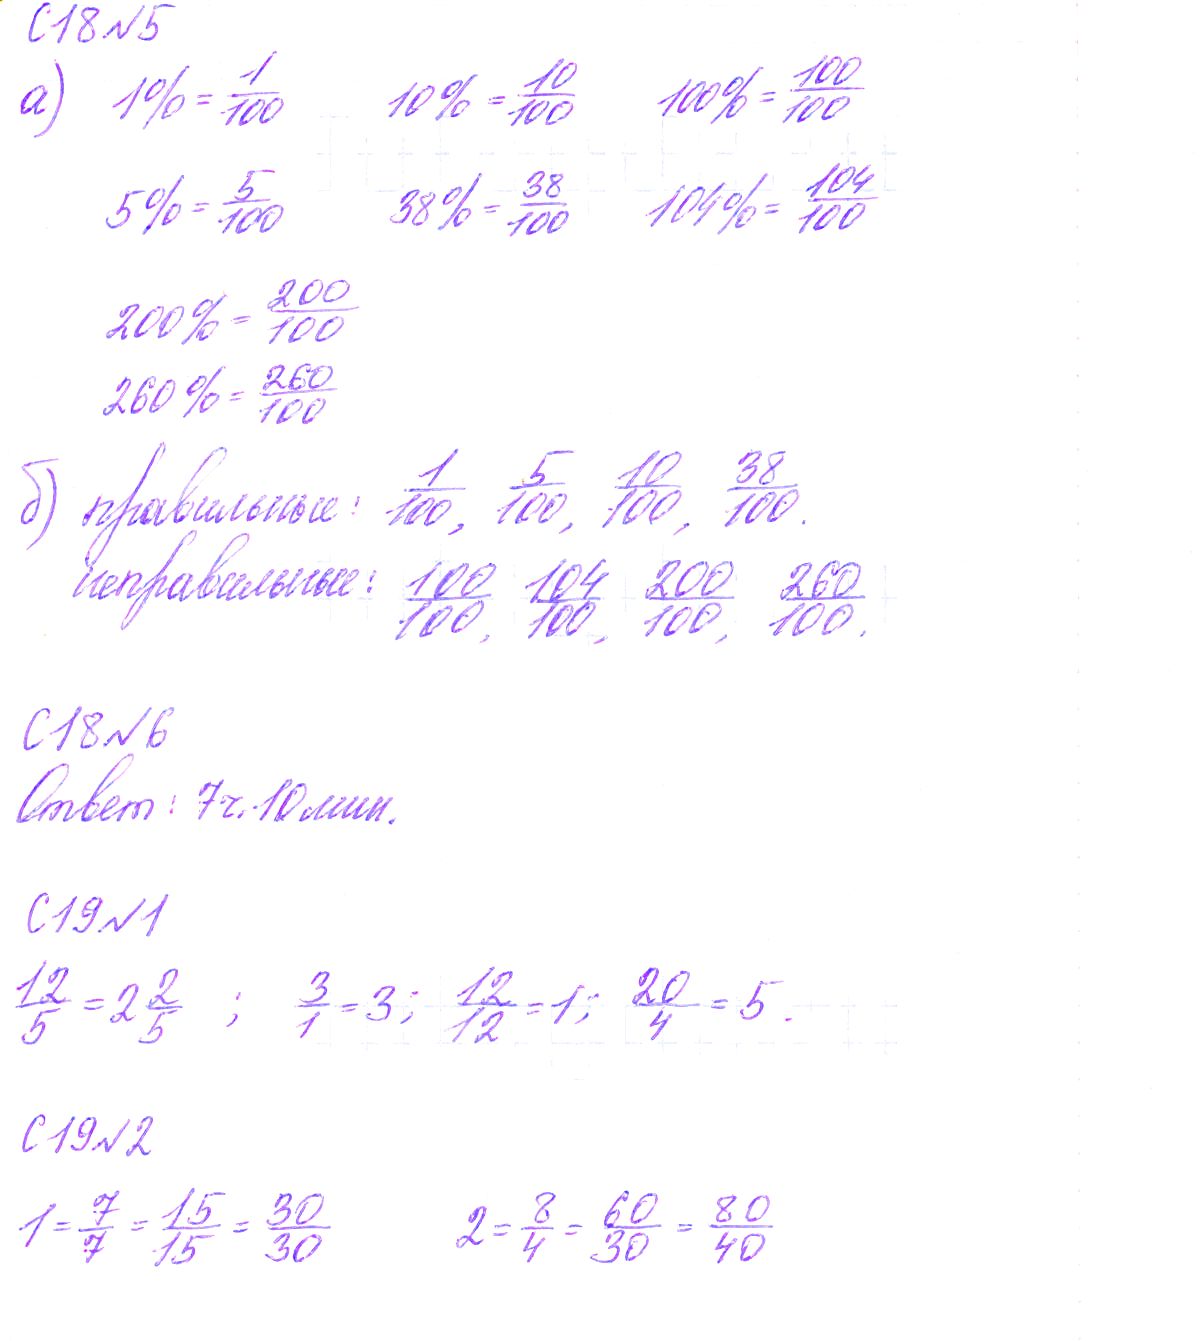 С18№5
а) 1% = 1/100 10% = 10/100 100% = 100/100
5% = 5/100 38% = 38/100 104% = 104/100
200% = 200/100
260% = 260/100
б) правильные: 1/100, 5/100, 10/100, 38/100.
неправильные: 100/100, 104/100, 200/100, 260/100.
С18№6
Ответ: 7ч. 10мин.
С19№1
12/5 = 2 2/5 ; 3/1 = 3; 12/12 = 1; 20/4 = 5.
С19№2
1 = 7/7 = 15/15 = 30/30 2 = 8/4 = 60/30 = 80/40